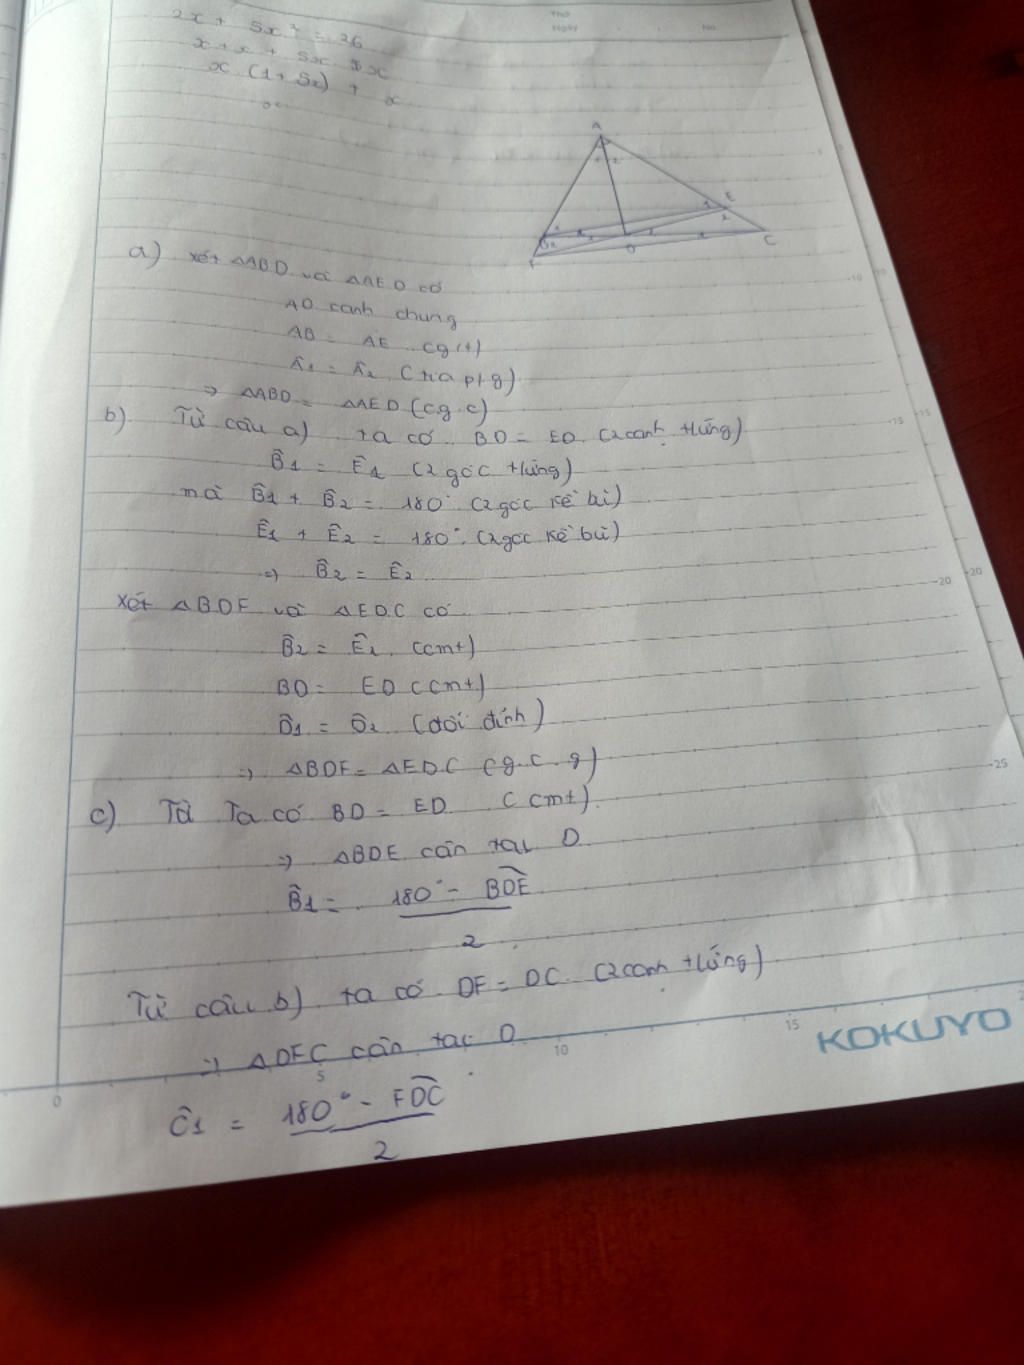 2x + 5x² = 26
x + x + 5x
x (1 + 5x) + x
Thứ
Ngày No.
A
1 2
E
1
2
B
C
D
F
a) xét △ABD và △AED có
AD cạnh chung
AB = AE (gt)
Â1 = Â2 (tia p/g)
⇒ △ABD = △AED (c.g.c)
b) Từ câu a) ta có BD = ED (2 cạnh tứng)
B̂1 = Ê1 (2 góc tứng)
mà B̂1 + B̂2 = 180° (2 góc kề bù)
Ê1 + Ê2 = 180° (2 góc kề bù)
⇒ B̂2 = Ê2
xét △BDF và △EDC có
B̂2 = Ê2 (cmt)
BD = ED (cmt)
D̂1 = D̂2 (đối đỉnh)
⇒ △BDF = △EDC (g.c.g)
c) Từ Ta có BD = ED (cmt)
⇒ △BDE cân tại D
B̂1 = 180° - BDE
2
Từ câu b) ta có DF = DC (2 cạnh tứng)
⇒ △DFC cân tại D
Ĉ1 = 180° - FDC
2
0 5 10 15
KOKUYO
10
15
15
20
20
25